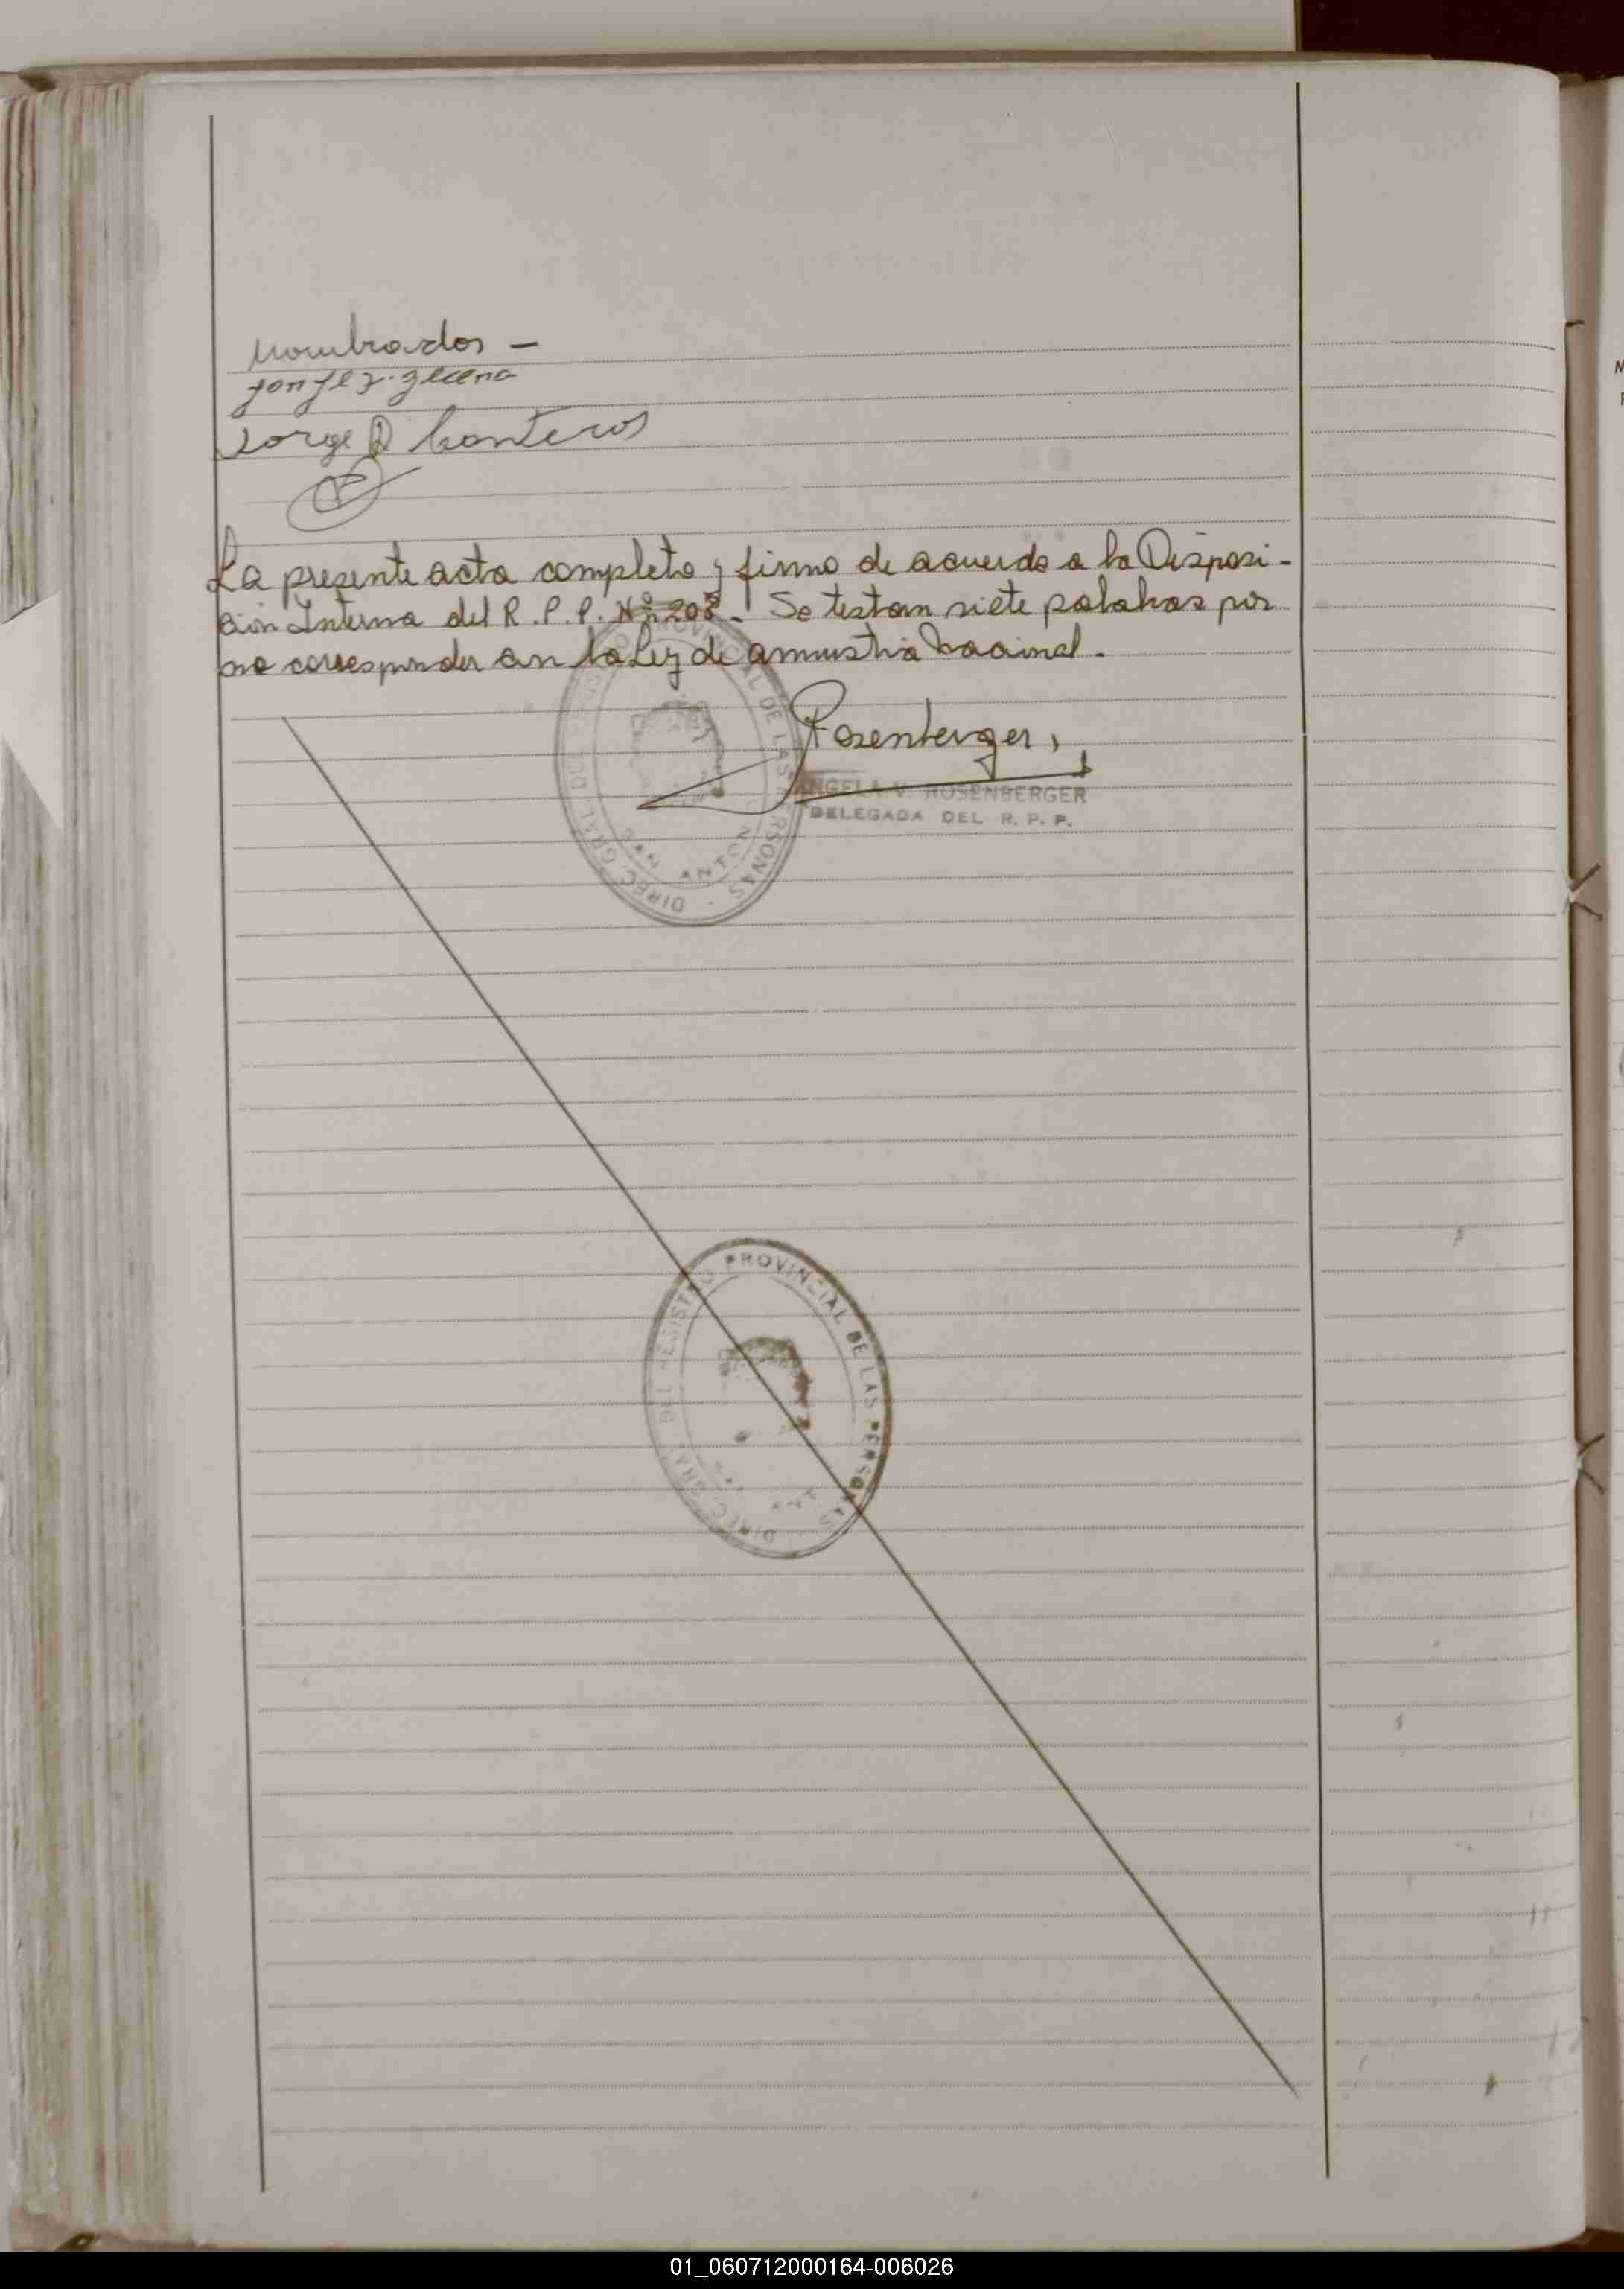 nombrados —
Jorge D Canteros
La presente acta completo y firmo de acuerdo a la Disposi-
ción Interna del R.P.P. Nº 203. Se testan siete palabras por
no corresponder con la Ley de amnistía Nacional.
Rosenberger
ANGELA V. ROSENBERGER
DELEGADA DEL R. P. P.
DIREC. GRAL. DEL REGISTRO PROVINCIAL DE LAS PERSONAS -
SAN ANTON
DIREC. GRAL. DEL REGISTRO PROVINCIAL DE LAS PERSONAS
01_060712000164-006026